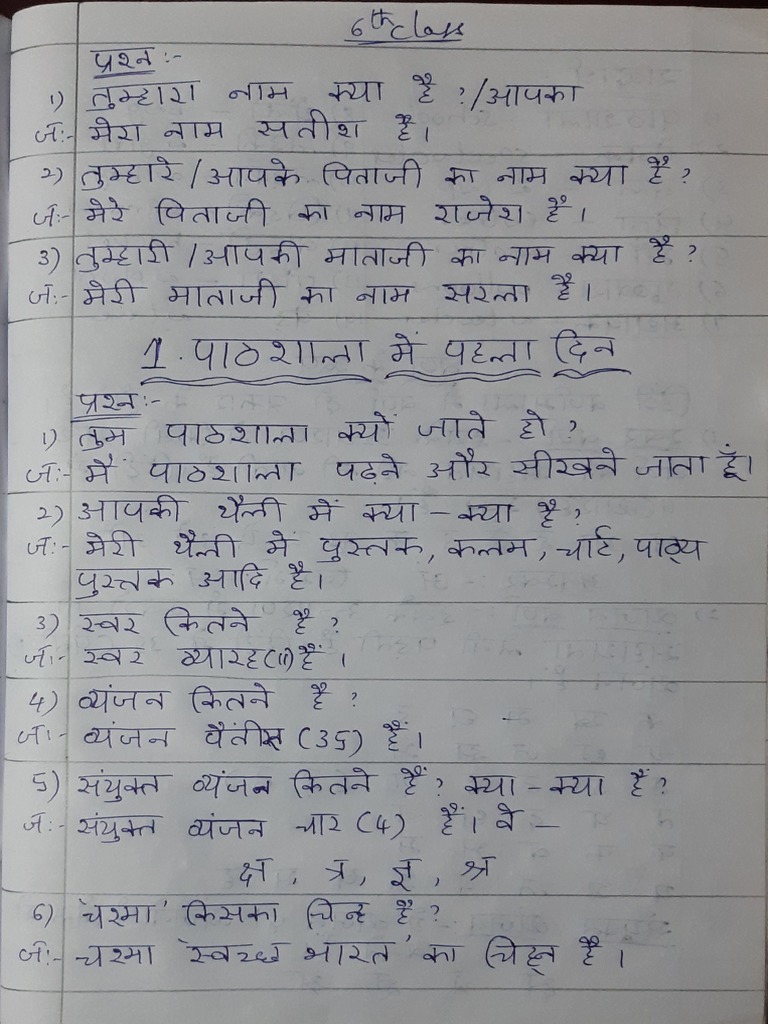 6th class
प्रश्न :-
1) तुम्हारा नाम क्या है ?/आपका
जः- मेरा नाम सतीश है।
2) तुम्हारे / आपके पिताजी का नाम क्या है ?
जः- मेरे पिताजी का नाम राजेश है ।
3) तुम्हारी / आपकी माताजी का नाम क्या है ?
जः- मेरी माताजी का नाम सरला है।
1. पाठशाला में पहला दिन
प्रश्न :-
1) तुम पाठशाला क्यों जाते हो ?
जः- मैं पाठशाला पढ़ने और सीखने जाता हूँ।
2) आपकी थैली में क्या - क्या है ?
जः- मेरी थैली में पुस्तक, कलम, चार्ट, पाठ्य
पुस्तक आदि है।
3) स्वर कितने है ?
जः- स्वर ग्यारह (11) हैं ।
4) व्यंजन कितने है ?
जः- व्यंजन पैंतीस (35) हैं।
5) संयुक्त व्यंजन कितने हैं ? क्या - क्या हैं ?
जः- संयुक्त व्यंजन चार (4) हैं। वे —
क्ष , त्र , ज्ञ , श्र
6) 'चश्मा' किसका चिन्ह है ?
जः- चश्मा 'स्वच्छ भारत' का चिह्न है ।